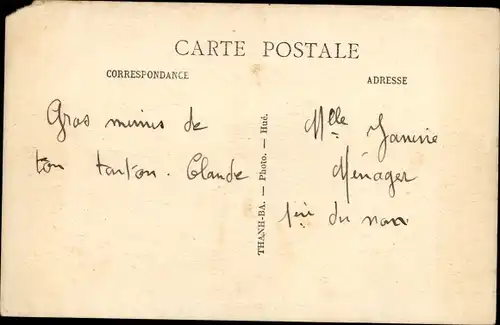 CARTE POSTALE
CORRESPONDANCE
ADRESSE
Gros mimis de
ton tonton. Claude
THANH-BA. — Photo. — Hué.
Mlle Janine
Ménager
du nom